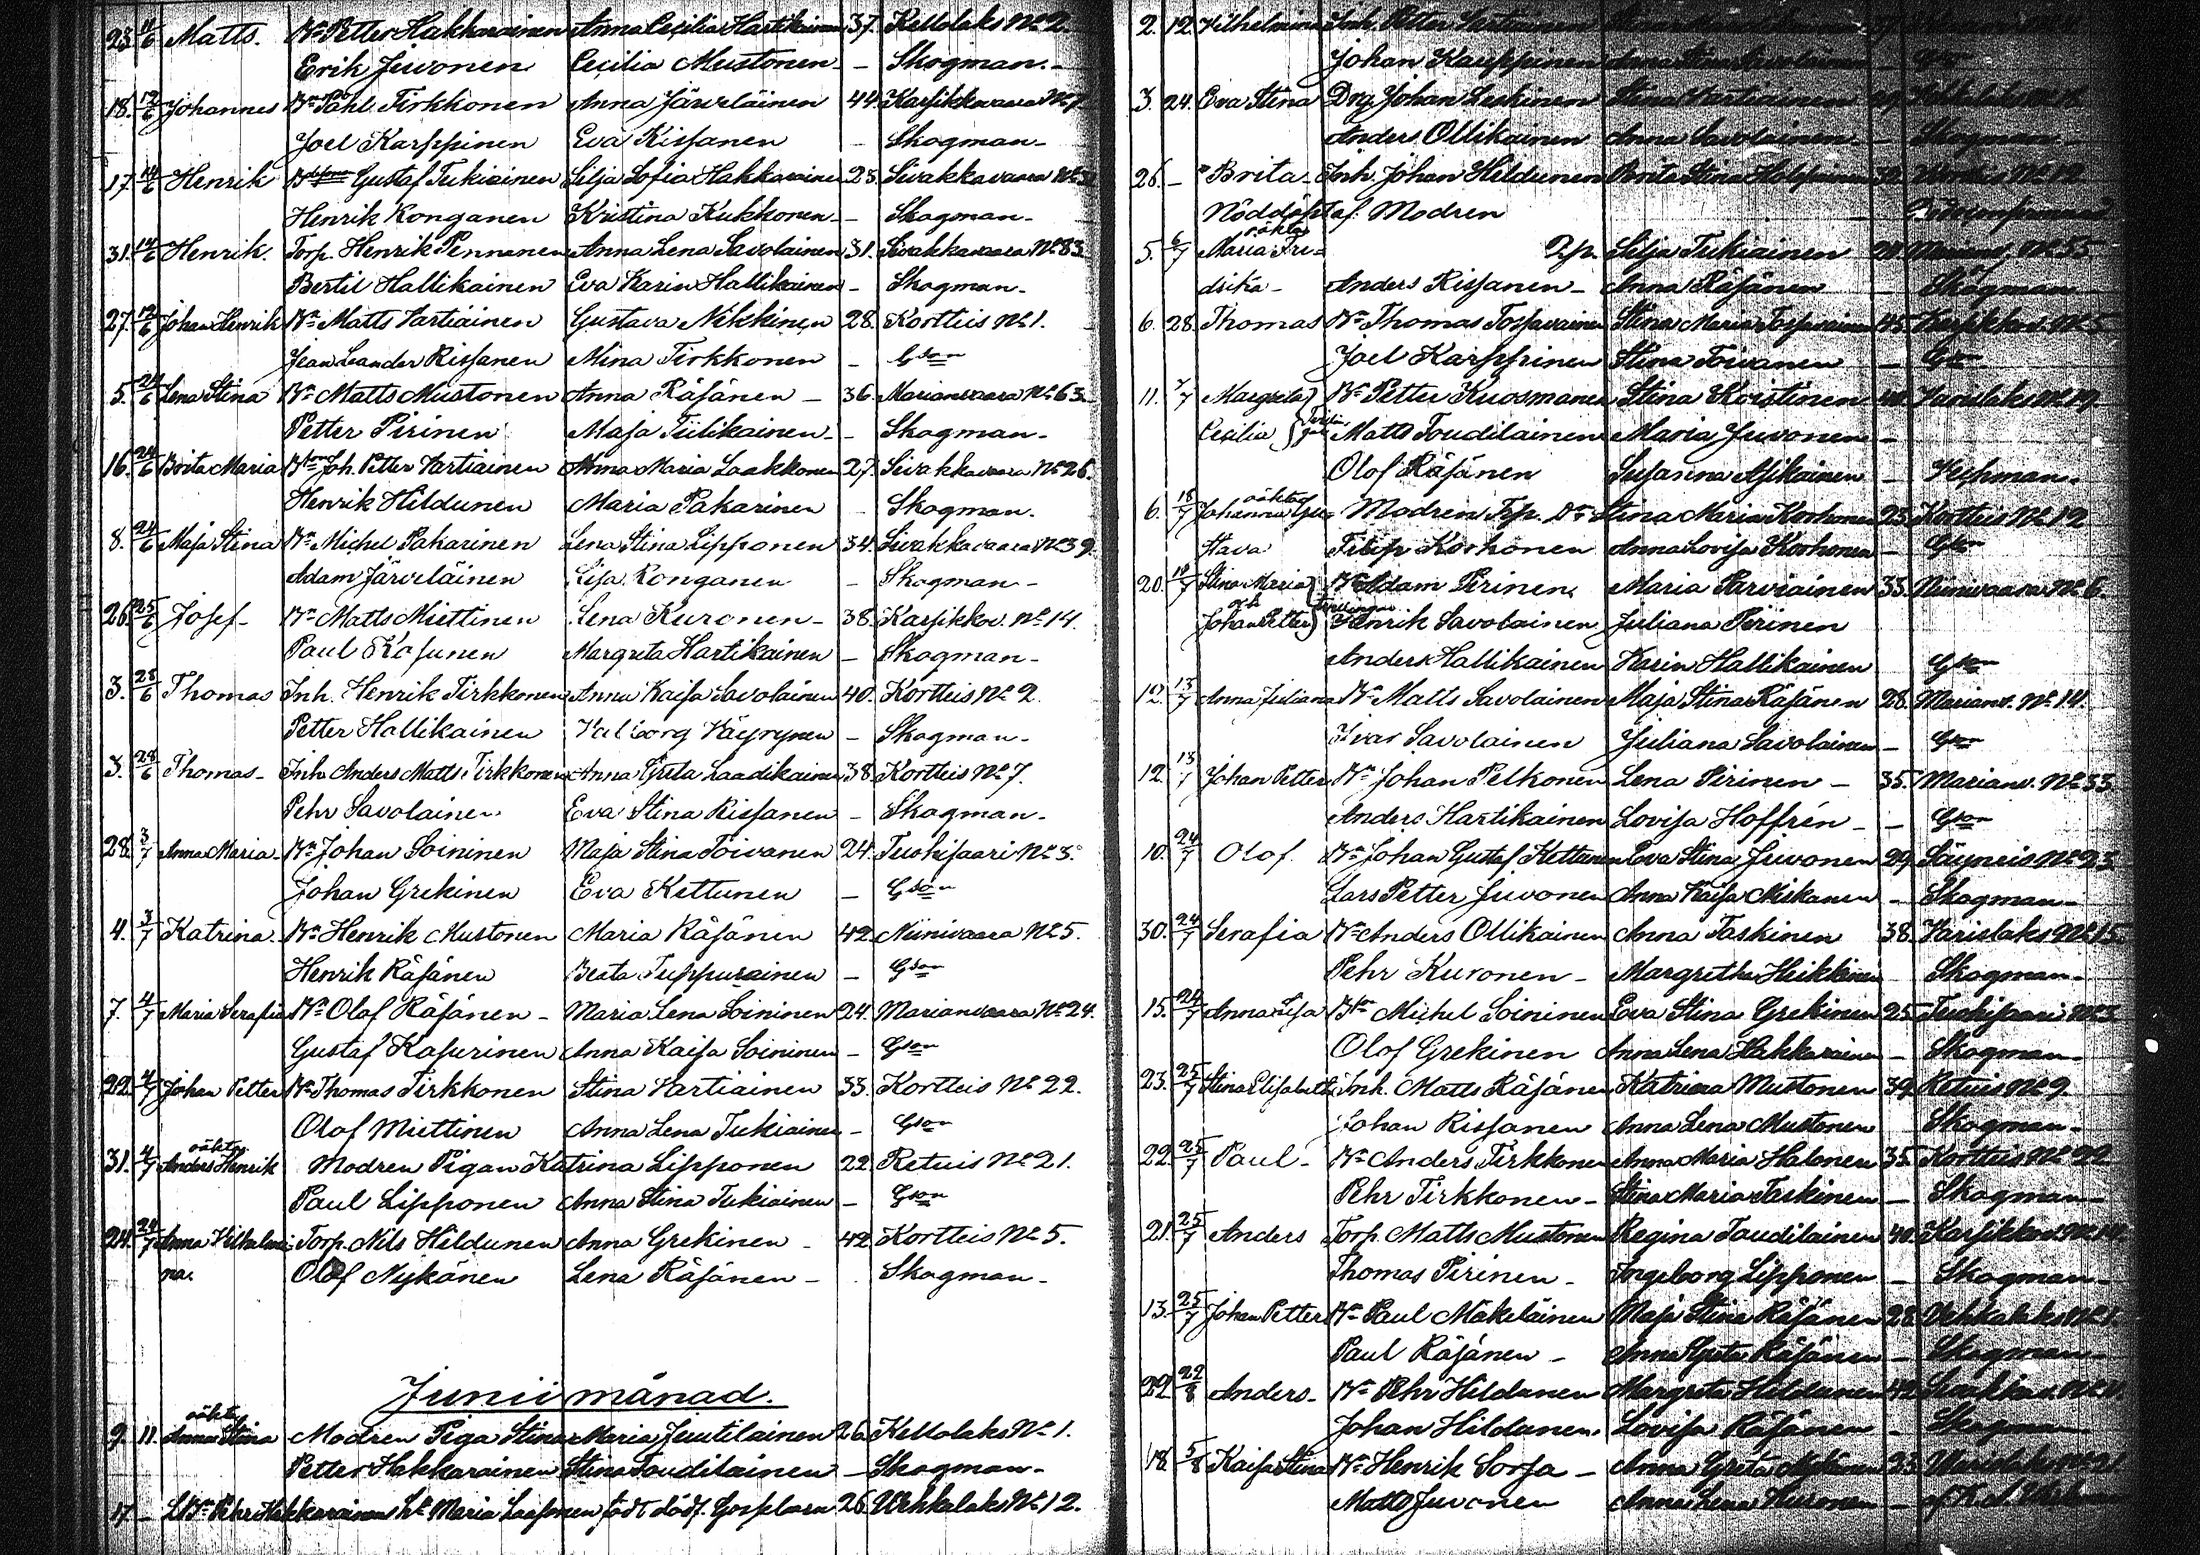 23. 11/6 Matts. Bn Petter Hakkarainen Anna Cecilia Hartikainen 37. Kellolaks No 2.
Erik Juvonen Cecilia Mustonen - - Skogman. -
18. 12/6 Johannes Bn Påhl Tirkkonen Anna Järveläinen 44. Karsikkovaara No 7
Joel Karppinen Eva Rissanen - Skogman -
17. 14/6 Henrik Gustaf Tukiainen Silja Sofia Hakkarainen 23. Sivakkavaara No 3
Henrik Ronganen Kristina Kukkonen - - Skogman -
31. 14/6 Henrik. Torp. Henrik Pennanen Anna Lena Savolainen 31. Sivakkavaara No 83
Bertil Hallikainen Eva Karin Hallikainen - Skogman -
27. 19/6 Johan Henrik Bn Matts Vartiainen Gustava Nikkinen 28. Kortteis No 1.
Jean Leander Rissanen Mina Tirkkonen - Gson
5. 24/6 Lena Stina Bn Matts Mustonen Anna Räsänen - 36. Marianvaara No 63
Petter Pirinen Maja Tiilikainen - - Skogman -
16. 24/6 Brita Maria Joh. Petter Vartiainen Anna Maria Laakkonen 27. Sivakkavaara No 26.
Henrik Hildunen Maria Pakarinen Skogman.
8. 24/6 Maja Stina Bn Michel Pakarinen Lena Stina Lipponen 34. Sivakkavaara No 39.
Adam Järveläinen Lisa Ronganen - Skogman -
26. 25/6 Josef - Bn Matts Miettinen Lena Kuronen - 38. Karsikkov. No 14.
Paul Kosunen Margreta Hartikainen - Skogman -
3. 28/6 Thomas Inh. Henrik Tirkkonen Anna Kaisa Savolainen 40. Kortteis No 2.
Petter Hallikainen Valborg Väyrynen - Skogman -
3. 28/6 Thomas - Inh Anders Matts. Tirkkonen Anna Greta Laadikainen 38. Kortteis No 7.
Pehr Savolainen Eva Stina Rissanen - Skogman -
28. 3/7 Anna Maria - Bn Johan Soininen Maja Stina Toivanen 24. Tuohisaari No 3.
Johan Grekinen Eva Kettunen - Gson
4. 3/7 Katrina. Bn Henrik Mustonen Maria Räsänen 42. Niinivaara No 5.
Henrik Räsänen Beata Tuppurainen - Gson
7. 4/7 Maria Serafia Bn Olof Räsänen - Maria Lena Soininen 24. Marianvaara No 24.
Gustaf Kasurinen Anna Kaisa Soininen - Gson
22. 4/7 Johan Petter Bn Thomas Tirkkonen Stina Vartiainen 33. Kortteis No 22.
Olof Miettinen Anna Lena Tukiainen - Gson
oäkta
31. 4/7 Anders Henrik Modren Pigan Katrina Lipponen 22. Retuis No 21.
Paul Lipponen Anna Stina Tukiainen - Gson
24. 24/7 Anna Vilhelmi- Torp. Nils Hildunen Anna Grekinen - 42 Kortteis No 5.
na. Olof Nykänen Lena Räsänen - Skogman -
Junii månad.
oäkta
9. 11. Anna Stina Modren Piga Stina Maria Juutilainen 26. Kellolaks No 1.
Petter Hakkarainen Stina Toudilainen - Skogman -
17 - Pehr Hakkarainen Maria Laasonen född död. Gossebarn 26. Vehkalaks No 12.
2. 12. Vilhelmina Inh. Petter
Johan Karppinen
3. 24. Eva Stina Drg. Johan Leskinen Stina Vartiainen
Anders Ollikainen Anna Savolainen - Skogman -
26. - Brita - Inh. Johan Hildunen Brita Stina Holppainen
Nöddöpt af Modren
oäkta
5. 6/7 Maria Fre- Silja Tukiainen Marianv. No 55
drika - Anders Rissanen - Anna Räsänen Skogman
6. 28. Thomas Bn Thomas Tossavainen Stina Maria Tossavainen 45. Karsikkov. No 5
Joel Karppinen Stina Toivanen - Gson
11. 7/7 Margreta Bn Petter Kuosmanen Stina Koistinen Varislaks No 19
Cecilia Matts Toudilainen Maria Juvonen -
Olof Räsänen Susanna Asikainen -
oäkta
6. 18/7 Johanna Gus- Modren Stina Maria Korhonen 23. Kortteis No 12
tava Filip Korhonen Anna Lovisa Korhonen - Gson
20. 10/7 Stina Maria Bn Adam Pirinen Maria Parviainen 33. Niinivaara No 6.
och tvillingar
Johan Petter Henrik Savolainen Juliana Pirinen
Anders Hallikainen Karin Hallikainen Gson
12. 13/7 Anna Juliana Bn Matts Savolainen Maja Stina Räsänen 28. Marianv. No 14.
Ivar Savolainen Juliana Savolainen - Gson
12. 13/7 Johan Petter Bn Johan Pelkonen Lena Pirinen - 35. Marianv. No 33
Anders Hartikainen Lovisa Hoffrén - - Gson
10. 24/7 Olof. Bn Johan Gustaf Kettunen Eva Stina Juvonen 29. Säyneis No 23
Lars Petter Juvonen Anna Kaisa Miskanen - Skogman -
30. 24/7 Serafia Bn Anders Ollikainen Anna Taskinen 38. Varislaks No 15
Pehr Kuronen - Margretha Heikkinen Skogman -
15. 24/7 Anna Lisa Michel Soininen Eva Stina Grekinen 25. Tuohisaari No 3
Olof Grekinen Anna Lena Hakkarainen - Skogman -
23. 25/7 Stina Elisabeth Inh. Matts Räsänen Katrina Mustonen 39. Retuis No 9.
Johan Rissanen Anna Lena Mustonen Skogman -
22. 25/7 Paul - Bn Anders Tirkkonen Anna Maria Halonen 35. Kortteis No 22
Pehr Tirkkonen - Stina Maria Taskinen - Skogman -
21. 25/7 Anders Torp. Matts Mustonen Regina Toudilainen 40. Karsikkov. No 14.
Thomas Pirinen - Ingeborg Lipponen - Skogman -
13. 25/7 Johan Petter Bn Paul Mäkeläinen Maja Stina Räsänen 28. Vehkalaks No 1.
Paul Räsänen - Anna Greta Räsänen - Skogman -
22. 22/8 Anders - Bn Pehr Hildunen Margreta Hildunen 42.
Johan Hildunen. Lovisa Räsänen - Skogman
18. 5/8 Kaisa Stina Bn Henrik Sorsa - Anna Greta
Matts Juvonen Anna Lena Kuronen -